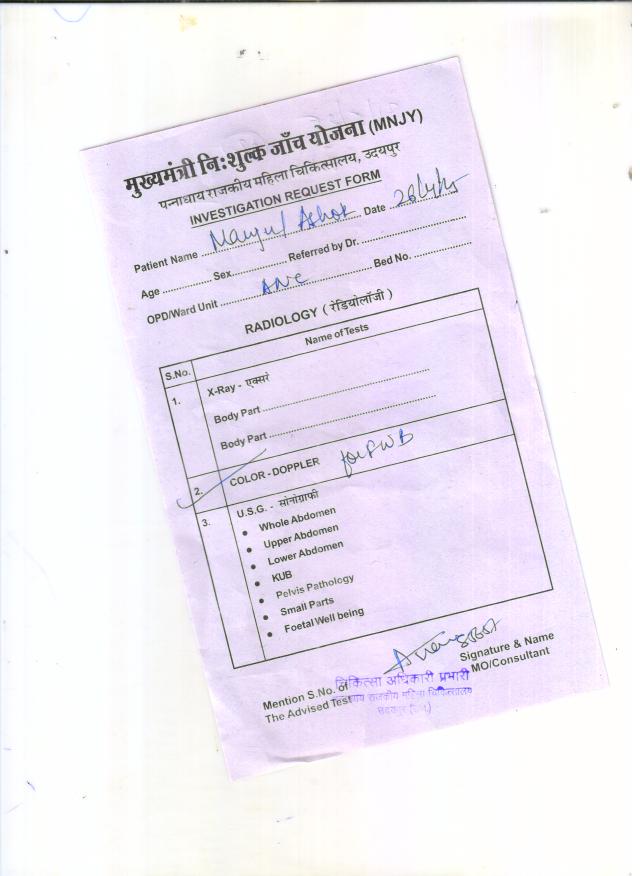 मुख्यमंत्री नि:शुल्क जाँच योजना (MNJY)
पन्नाधाय राजकीय महिला चिकित्सालय, उदयपुर
INVESTIGATION REQUEST FORM
Patient Name Manju/ Ashok Date
Age Sex Referred by Dr.
OPD/Ward Unit ANC Bed No.
RADIOLOGY ( रेडियोलॉजी )
S.No. Name of Tests
1. X-Ray - एक्सरे
Body Part
Body Part
2. COLOR - DOPPLER for FWB
3. U.S.G. - सोनोग्राफी
• Whole Abdomen
• Upper Abdomen
• Lower Abdomen
• KUB
• Pelvis Pathology
• Small Parts
• Foetal Well being
Signature & Name
MO/Consultant
Mention S.No. of
The Advised Test
चिकित्सा अधिकारी प्रभारी
राजकीय महिला चिकित्सालय
उदयपुर (राज.)